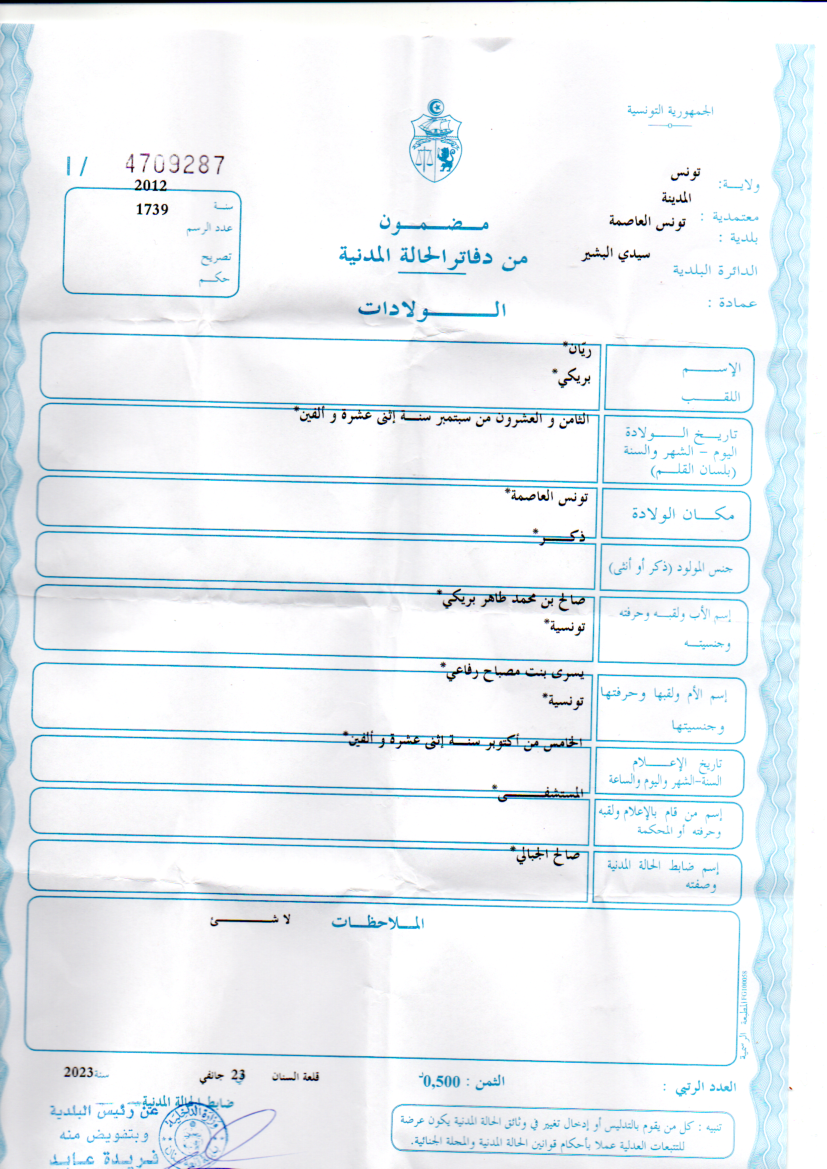 الجمهورية التونسية
4709287 / ا
ولايـــة: تونس
معتمدية : المدينة
بلدية : تونس العاصمة
الدائرة البلدية سيدي البشير
عمادة :
سنة 2012
عدد الرسم 1739
تصريح
حكـــم
مـــضـــمـــون
من دفاتر الحالة المدنية
الـــــــولادات
الإســــــم ريّان*
اللقـــــب بريكي*
تاريـــخ الـــــولادة
اليوم - الشهر والسنة
(بلسان القلـــم)
الثامن و العشرون من سبتمبر سنـــة إثنى عشرة و ألفين*
مكـــان الولادة تونس العاصمة*
جنس المولود (ذكر أو أنثى) ذكـــــر*
إسم الأب ولقبـــه وحرفته
وجنسيتـــه
صالح بن محمد طاهر بريكي*
تونسية*
إسم الأم ولقبها وحرفتها
وجنسيتها
يسرى بنت مصباح رفاعي*
تونسية*
تاريخ الإعـــــلام
السنة-الشهر واليوم والساعة
الخامس من أكتوبر سنـــة إثنى عشرة و ألفين*
إسم من قام بالإعلام ولقبه
وحرفته أو المحكمة
المستشفـــــــى*
إسم ضابط الحالة المدنية
وصفته
صالح الجبالي*
الملاحظـــات لا شـــــــئ
المطبعة الرسمية
قلعة السنان في 23 جانفي سنة 2023
العدد الرتبي :
الثمن : 0,500د
ضابط الحالة المدنية
عن رئيس البلدية
وبتفويض منه
فريدة عابد
تنبيه : كل من يقوم بالتدليس أو إدخال تغيير في وثائق الحالة المدنية يكون عرضة
للتتبعات العدلية عملا بأحكام قوانين الحالة المدنية والمجلة الجنائية.